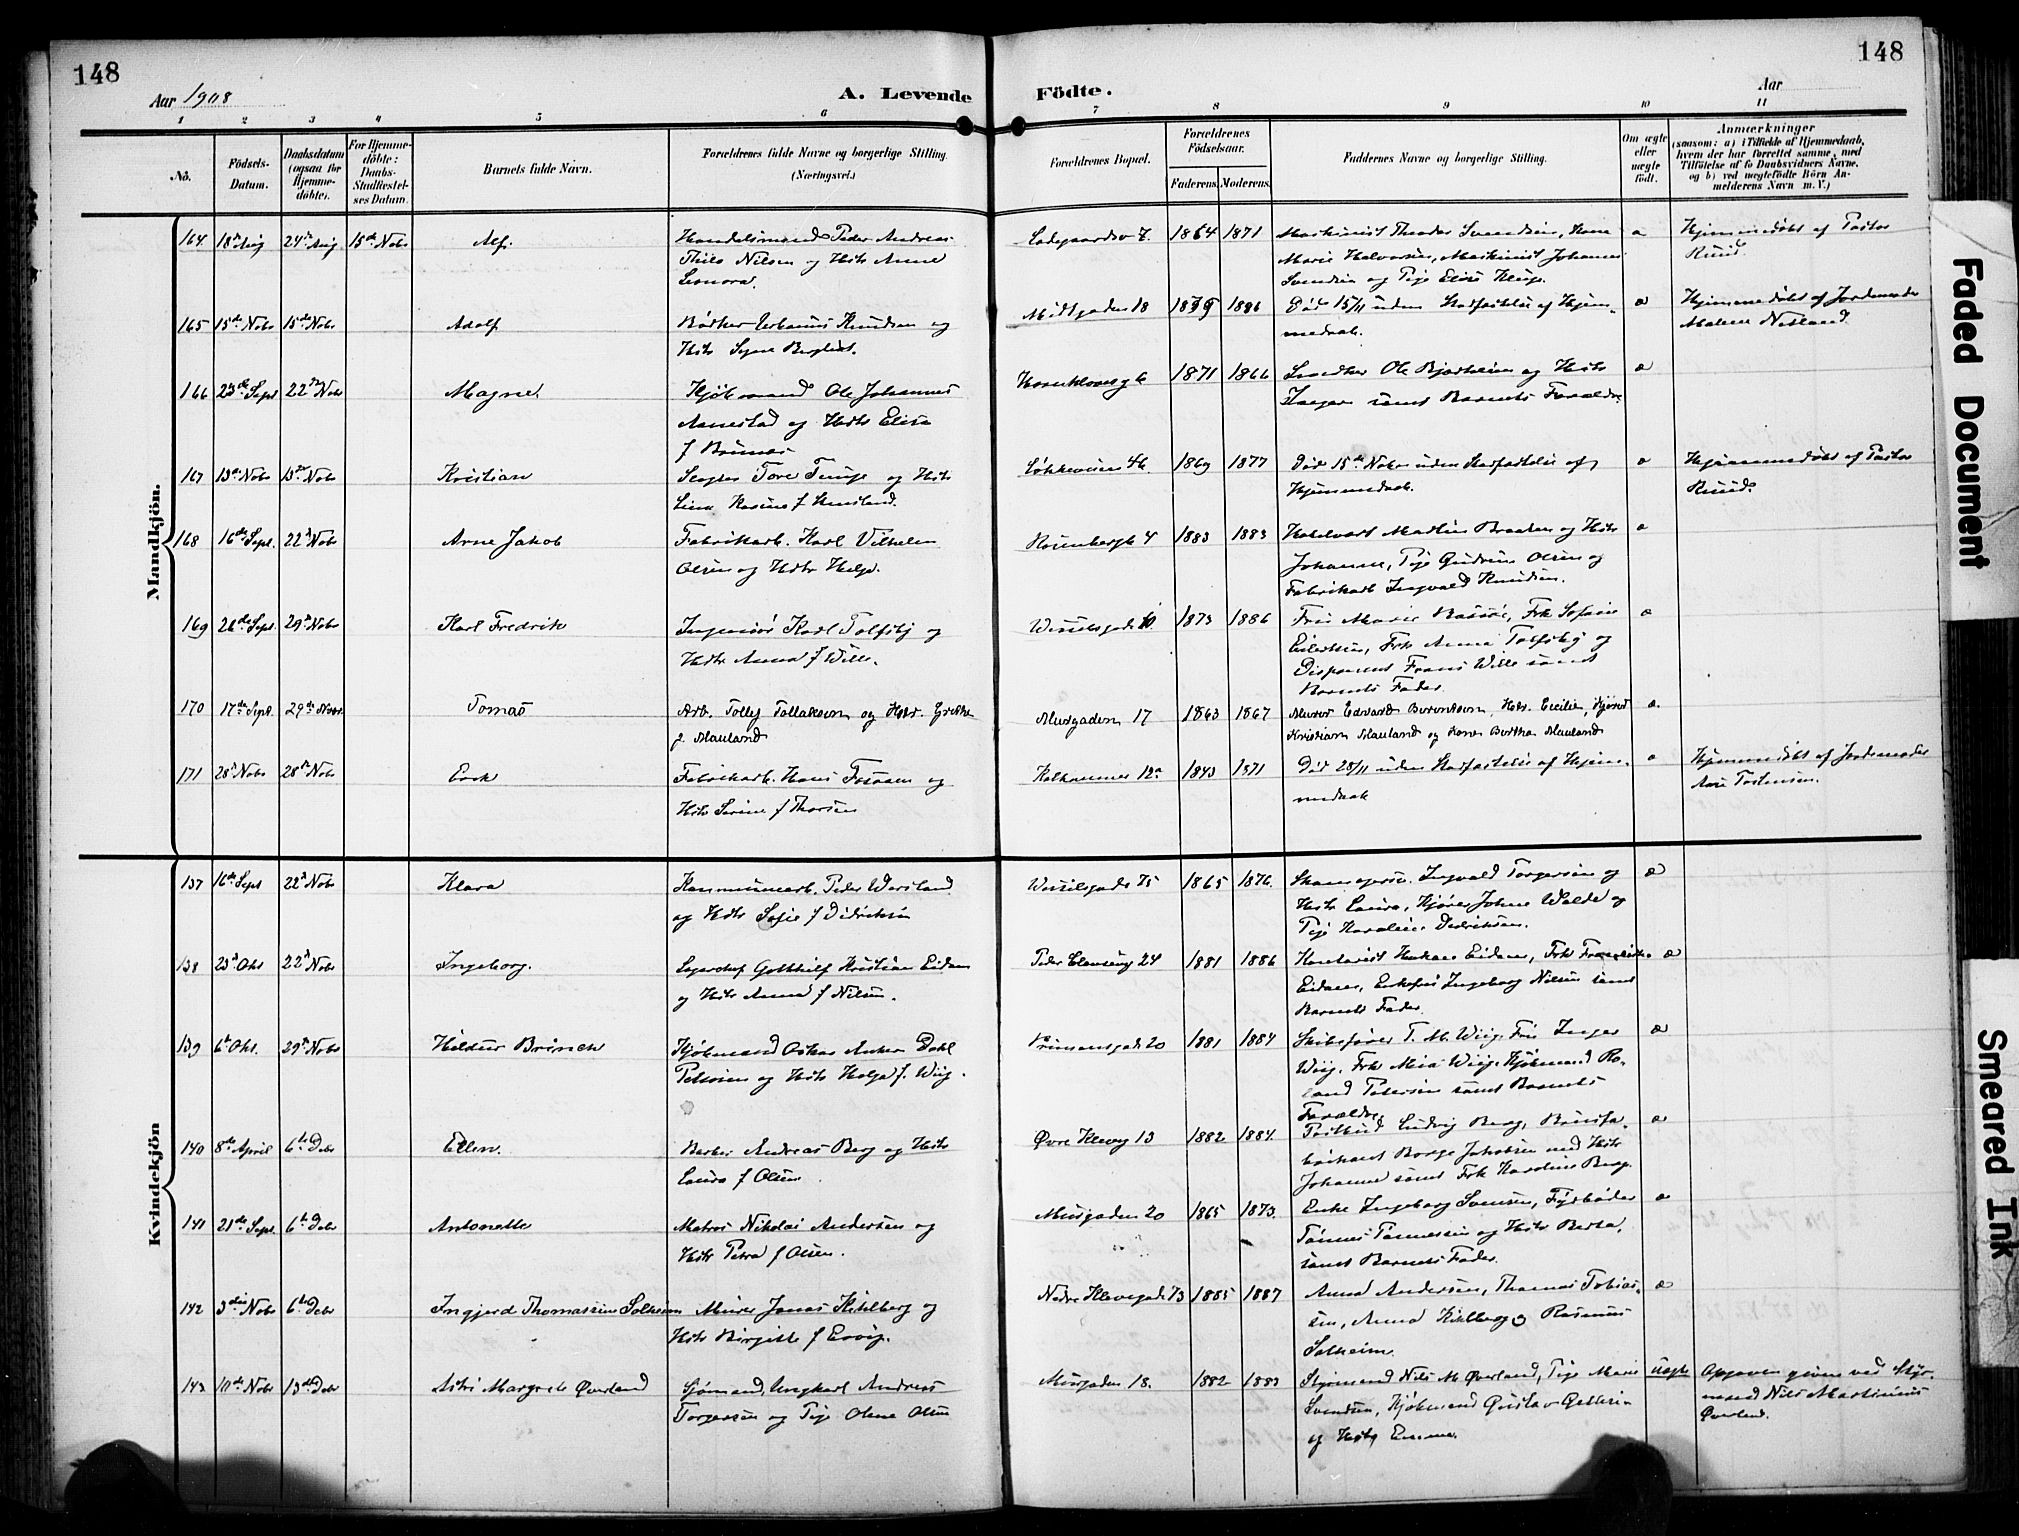 148
148
Aar 1908
A. Levende Födte.
Aar
1 2 3 4 5 6 7 8 9 10 11
No.
Födsels-
Datum.
Daabsdatum
(ogsaa for
Hjemme-
döbte).
For Hjemme-
döbte:
Daabs-
Stadfæstel-
ses Datum.
Barnets fulde Navn.
Forældrenes fulde Navne og borgerlige Stilling.
(Næringsvei.)
Forældrenes Bopæl.
Forældrenes
Födselsaar.
Faderens. Moderens.
Faddernes Navne og borgerlige Stilling.
Om ægte
eller
uægte
födt.
Anmærkninger
(saasom: a) i Tilfælde af Hjemmedaab,
hvem der har forrettet samme, med
Tilföielse af to Daabsvidners Navne,
og b) ved uægtefödte Börn An-
melderens Navn m. V.)
Mandkjön.
164 18de Aug 24de Aug 15de Nobr Alf. Handelsmand Peder Andreas
Thilo Nilsen og Hstr Anne
Leonora.
Ladegaardsv 7. 1864 1871 Maskinist Theodor Svendsen, Kone
Marie Halvorsen, Maskinist Johannes
Svendsen og Pige Elise
æ Hjemmedøbt af Pastor
Ruud.
165 15de Nobr 15de Nobr Adolf Bødker Urbanus Knudsen og
Hstr Signe Bergliot.
Midtgaden 18 1879 1886 Død 15/11 uden Stadfæstelse af Hjem-
medaab.
æ Hjemmedøbt af Jordemoder
Malene Netland.
166 23de Sept 22de Nobr Magne. Kjøbmand Ole Johannes
Aanestad og Hstr Elisa
f
1871 1866 Snedker Ole Bjørheim og Hstr
Inger samt Barnets Forældre.
æ
167 13de Nobr 13de Nobr Kristian Tore Tunge og Hstr
Lina Rasine f
Løkkeveien 46. 1869 1877 Død 15de Nobr uden Stadfæstelse af
Hjemmedaab.
æ Hjemmedøbt af Pastor
Ruud.
168 16de Sept. 22de Nobr Arne Jakob Fabrikarb. Karl Vilhelm
Olsen og Hstr Helga.
Rosenberggt 4 1883 1883 Martin Braaten og Hstr
Johanne, Pige Gudrun Olsen og
Fabrikarb Ingvald Knudsen.
æ
169 26de Sept. 29de Nobr Karl Fredrik Ingeniør Karl Tolfsby og
Hstr Anna f Wille.
Wesselsgade 10. 1873 1886 Fru Marie Frk Sofie
Eilertsen, Frk Anna Tolfsby og
Disponent Frans Wille samt
Barnets Fader.
æ
170 17de Sept. 29de Nobr. Tomas Arb. Tollef Tollaksen og Hstr. Grethe
f. Mauland
Musgaden 17 1863 1867 Murer Edvard Berentsen, Hstr. Cecilie, Kjører
Kristian Mauland og Kone Berthe Mauland
æ
171 28de Nobr 28de Nobr Fabrikarb. Hans og
Hstr Serine f Thorsen
Kalhammer 12a 1843 1871 Død 28/11 uden Stadfæstelse af Hjem-
medaab
æ Hjemmedøbt af Jordemoder
Tostensen.
Kvindekjön
137 16de Sept 22de Nobr Klara Kommunearb. Peder Warland
og Hstr Sofie f Didriksen
Wesselsgade 75 1865 1876. Ingvald Torgersen og
Hstr Laura, Kjører Johne Walde og
Pige Karoline Dedriksen.
æ
138 23de Okt 22de Nobr Ingeborg. Lagerchef Gotthilf Kristian Eidem
og Hstr Anna f Nilsen.
Peder Clausensg 24 1881 1886 Kontorist Eidem, Frk
Eidem, Enkefru Ingeborg Nilsen samt
Barnets Fader.
æ
139 6te Okt. 29de Nobr Hildur Brinch Kjøbmand Oskar Anker Dahl
Petersen og Hstr Helga f. Wiig.
20 1881 1884 Skibsfører T. M. Wiig, Fru Inger
Wiig, Frk Mia Wiig, Kjøbmand Ro-
land Petersen samt Barnets
Forældre
æ
140 8de April 6te Debr Ellen. Barber Andreas Berg og Hstr
Laura f Olsen
Øvre Klevg 13 1882 1884. Postbud Ludvig Berg,
Børge Jakobsen med Hstr
Johanne samt Frk Karoline Berg.
æ
141 21de Sept. 6te Debr Antonette Matros Nikolai Andersen og
Hstr Petra f Olsen.
Musgaden 20 1865 1873. Enke Ingeborg Svensen, Fyrbøder
Tønnes Tønnessen og Hstr Berta,
samt Barnets Fader.
æ
142 3die Nobr 6te Debr Ingjerd Thomassine Solheim Murer Jonas Kihlberg og
Hstr Birgitte f
Nedre Klevegade 73 1885 1887 Anna Andersen, Thomas Tobias-
sen, Anna Kihlberg og Rasmus
Solheim.
æ
143 10de Nobr 13de Debr Astri Margrete Øverland Sjømand, Ungkarl Andreas
Torgersen og Pige Olene Olsen
Musgaden 18. 1882 1883 Styrmand Nils M. Øverland, Pige Marie
Svendsen, Kjøbmand Gustav Pettersen
og Hstr Emma.
uægte Opgaven given ved Styr-
mand Nils Martinius
Øverland.
Faded Document
Smeared Ink